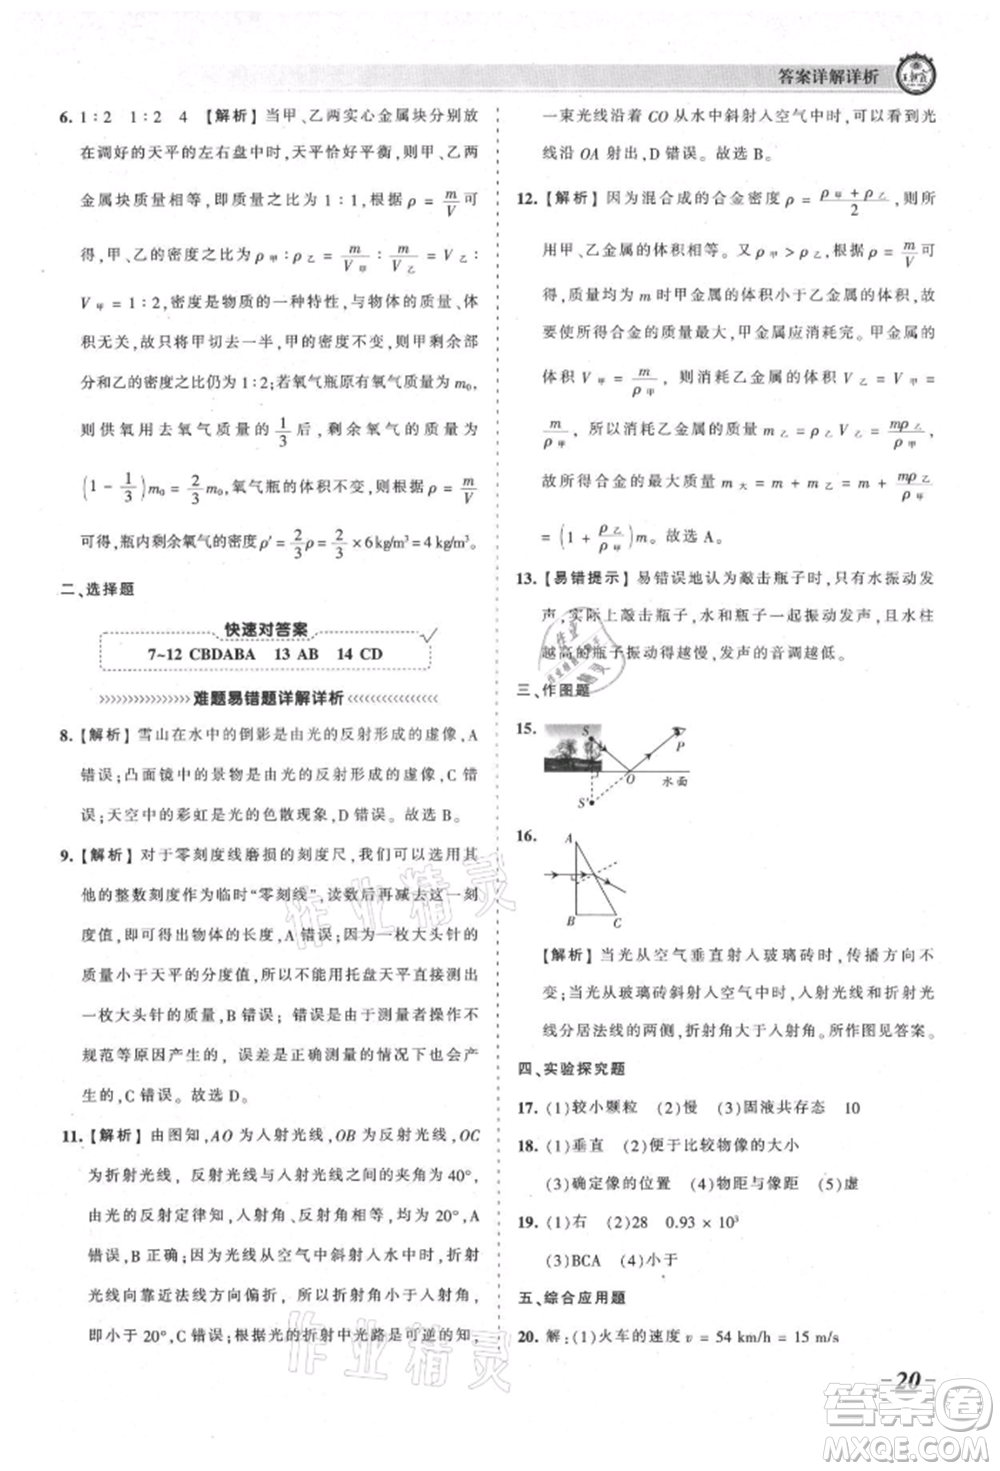 答案详解详析
6. 1∶2 1∶2 4 【解析】当甲、乙两实心金属块分别放
在调好的天平的左右盘中时,天平恰好平衡,则甲、乙两
金属块质量之比为1∶1。根据ρ = m/V 可
得,甲、乙的密度之比为ρ甲∶ρ乙 = m/V甲∶m/V乙 = V乙∶
V甲 = 1∶2,密度是物质的一种特性,与物体的质量、体
积无关,故将甲切去一半,甲的密度不变,则剩余部
分和乙的密度之比仍为1∶2;若氧气瓶原有氧气质量为m₀,
则供氧用去氧气质量的1/3后,剩余氧气的质量为
(1 - 1/3)m₀ = 2/3 m₀,氧气瓶的体积不变,根据ρ = m/V
可得,瓶内剩余氧气的密度ρ′ = 2/3 ρ = 2/3 × 6 kg/m³ = 4 kg/m³。
二、选择题
快速对答案
7~12 CBDABA 13 AB 14 CD
难题易错题详解详析
8. 【解析】雪山在水中的倒影是由光的反射形成的虚像,A
错误;凸面镜中的景物是由光的反射形成的虚像,C错
误;天空中的彩虹是光的色散现象,D错误。故选B。
9. 【解析】对于零刻度线磨损的刻度尺,我们可以使用其
他的整数刻度作为临时“零刻线”,读数后再减去这一刻
度值,即可得出物体的长度,A错误;因为一枚大头针的
质量小于天平的分度值,所以不能用托盘天平直接测出
一枚大头针的质量,B错误;错误是由于测量者操作不
规范等原因产生的,误差是正确测量的情况下也会产
生的,C错误。故选D。
11. 【解析】由图知,AO为入射光线,OB为反射光线,OC
为折射光线,反射光线与入射光线之间的夹角为40°,
由光的反射定律知,入射角=反射角=20°,A
错误,B正确;因为光线从空气中斜射入水中时,折射
光线向靠近法线方向偏折,所以折射角小于入射角,
即小于20°,C错误;根据光的折射中光路是可逆的知,
一束光线沿着CO从水中斜射入空气中时,可以看到光
线沿OA射出,D错误。故选B。
12. 【解析】因为混合成的合金密度ρ = (ρ甲 + ρ乙)/2,
所以甲、乙金属的体积相等。又ρ甲 > ρ乙,根据ρ = m/V可
得,质量均为m时甲金属的体积小于乙金属的体积,故
要使所得合金的质量最大,甲金属应消耗完。甲金属的
体积V甲 = m/ρ甲,则消耗乙金属的体积V乙 = V甲 =
m/ρ甲,所以消耗乙金属的质量m乙 = ρ乙V乙 = mρ乙/ρ甲,
故所得合金的质量最大m大 = m + m乙 = m + mρ乙/ρ甲
= (1 + ρ乙/ρ甲)m。故选A。
13. 【易错提示】易错误地认为敲击瓶子时,只有水振动发
声,实际上敲击瓶子时,水和瓶子一起振动发声,且水柱
越高的瓶子振动得越慢,发声的音调越低。
三、作图题
15.
S
P
O
水面
S′
16.
A
B
C
【解析】当光从空气垂直射入玻璃砖时,传播方向不
变;当光从玻璃砖斜射入空气中时,入射光线和折射光
线分居法线的两侧,折射角大于入射角。所作图见答案。
四、实验探究题
17. (1)较小颗粒 (2)慢 (3)固液共存态 10
18. (1)垂直 (2)便于比较物像的大小
(3)确定像的位置 (4)物距与像距 (5)虚
19. (1)右 (2)28 0.93 × 10³
(3)BCA (4)小于
五、综合应用题
20. 解:(1)火车的速度v = 54 km/h = 15 m/s
20
作业精灵
作业精灵
答案圈
MXQE.COM